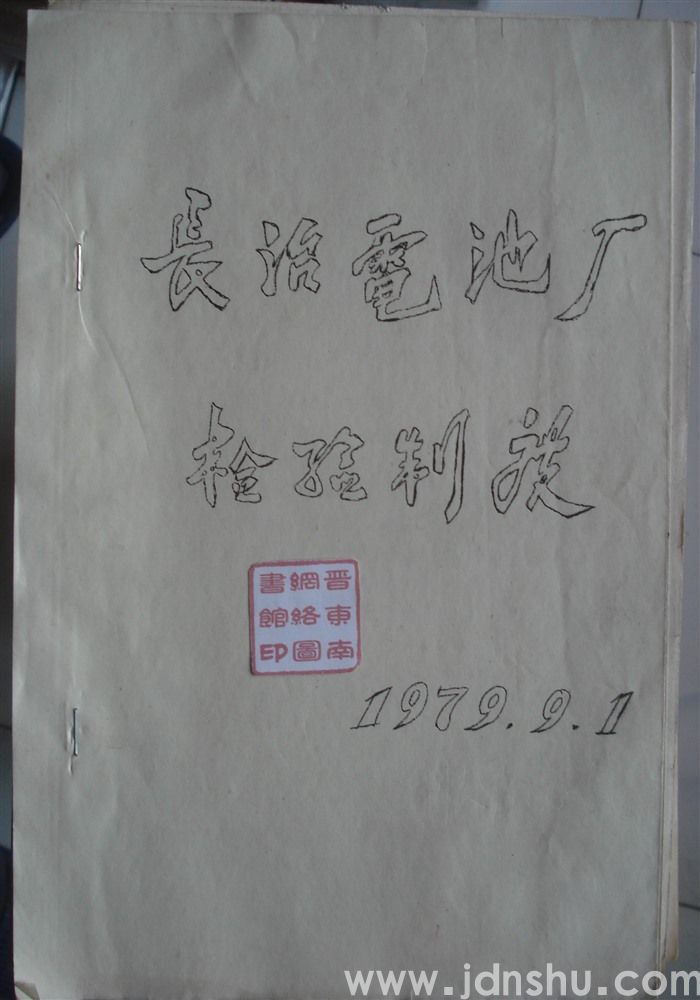 長治電池厂
检验制度
晋東南
網絡圖
書館印
1979.9.1
www.jdnshu.com